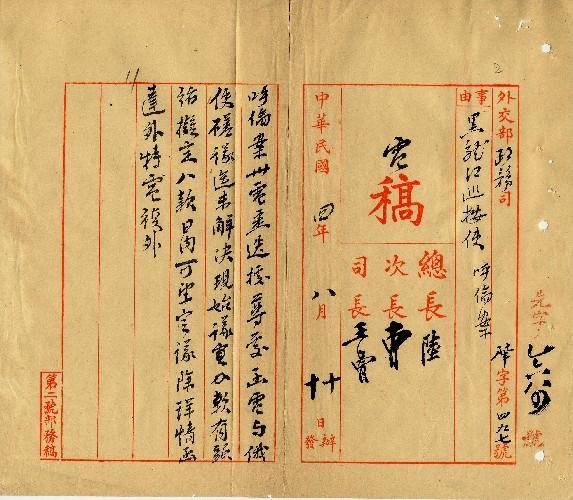 外交部 政務司 字第四九七號
事由 黑龍江巡按使 呼倫案
電稿
總長 陸
次長 曹
司長 王
中華民國 四年 八月 日辦發
呼倫案卅電悉迭接尊處函電与俄
使磋議迄未解決現始議 款有頭
緒擬定八款日內可望定議除詳情函
達外特電複外
第二號部務稿